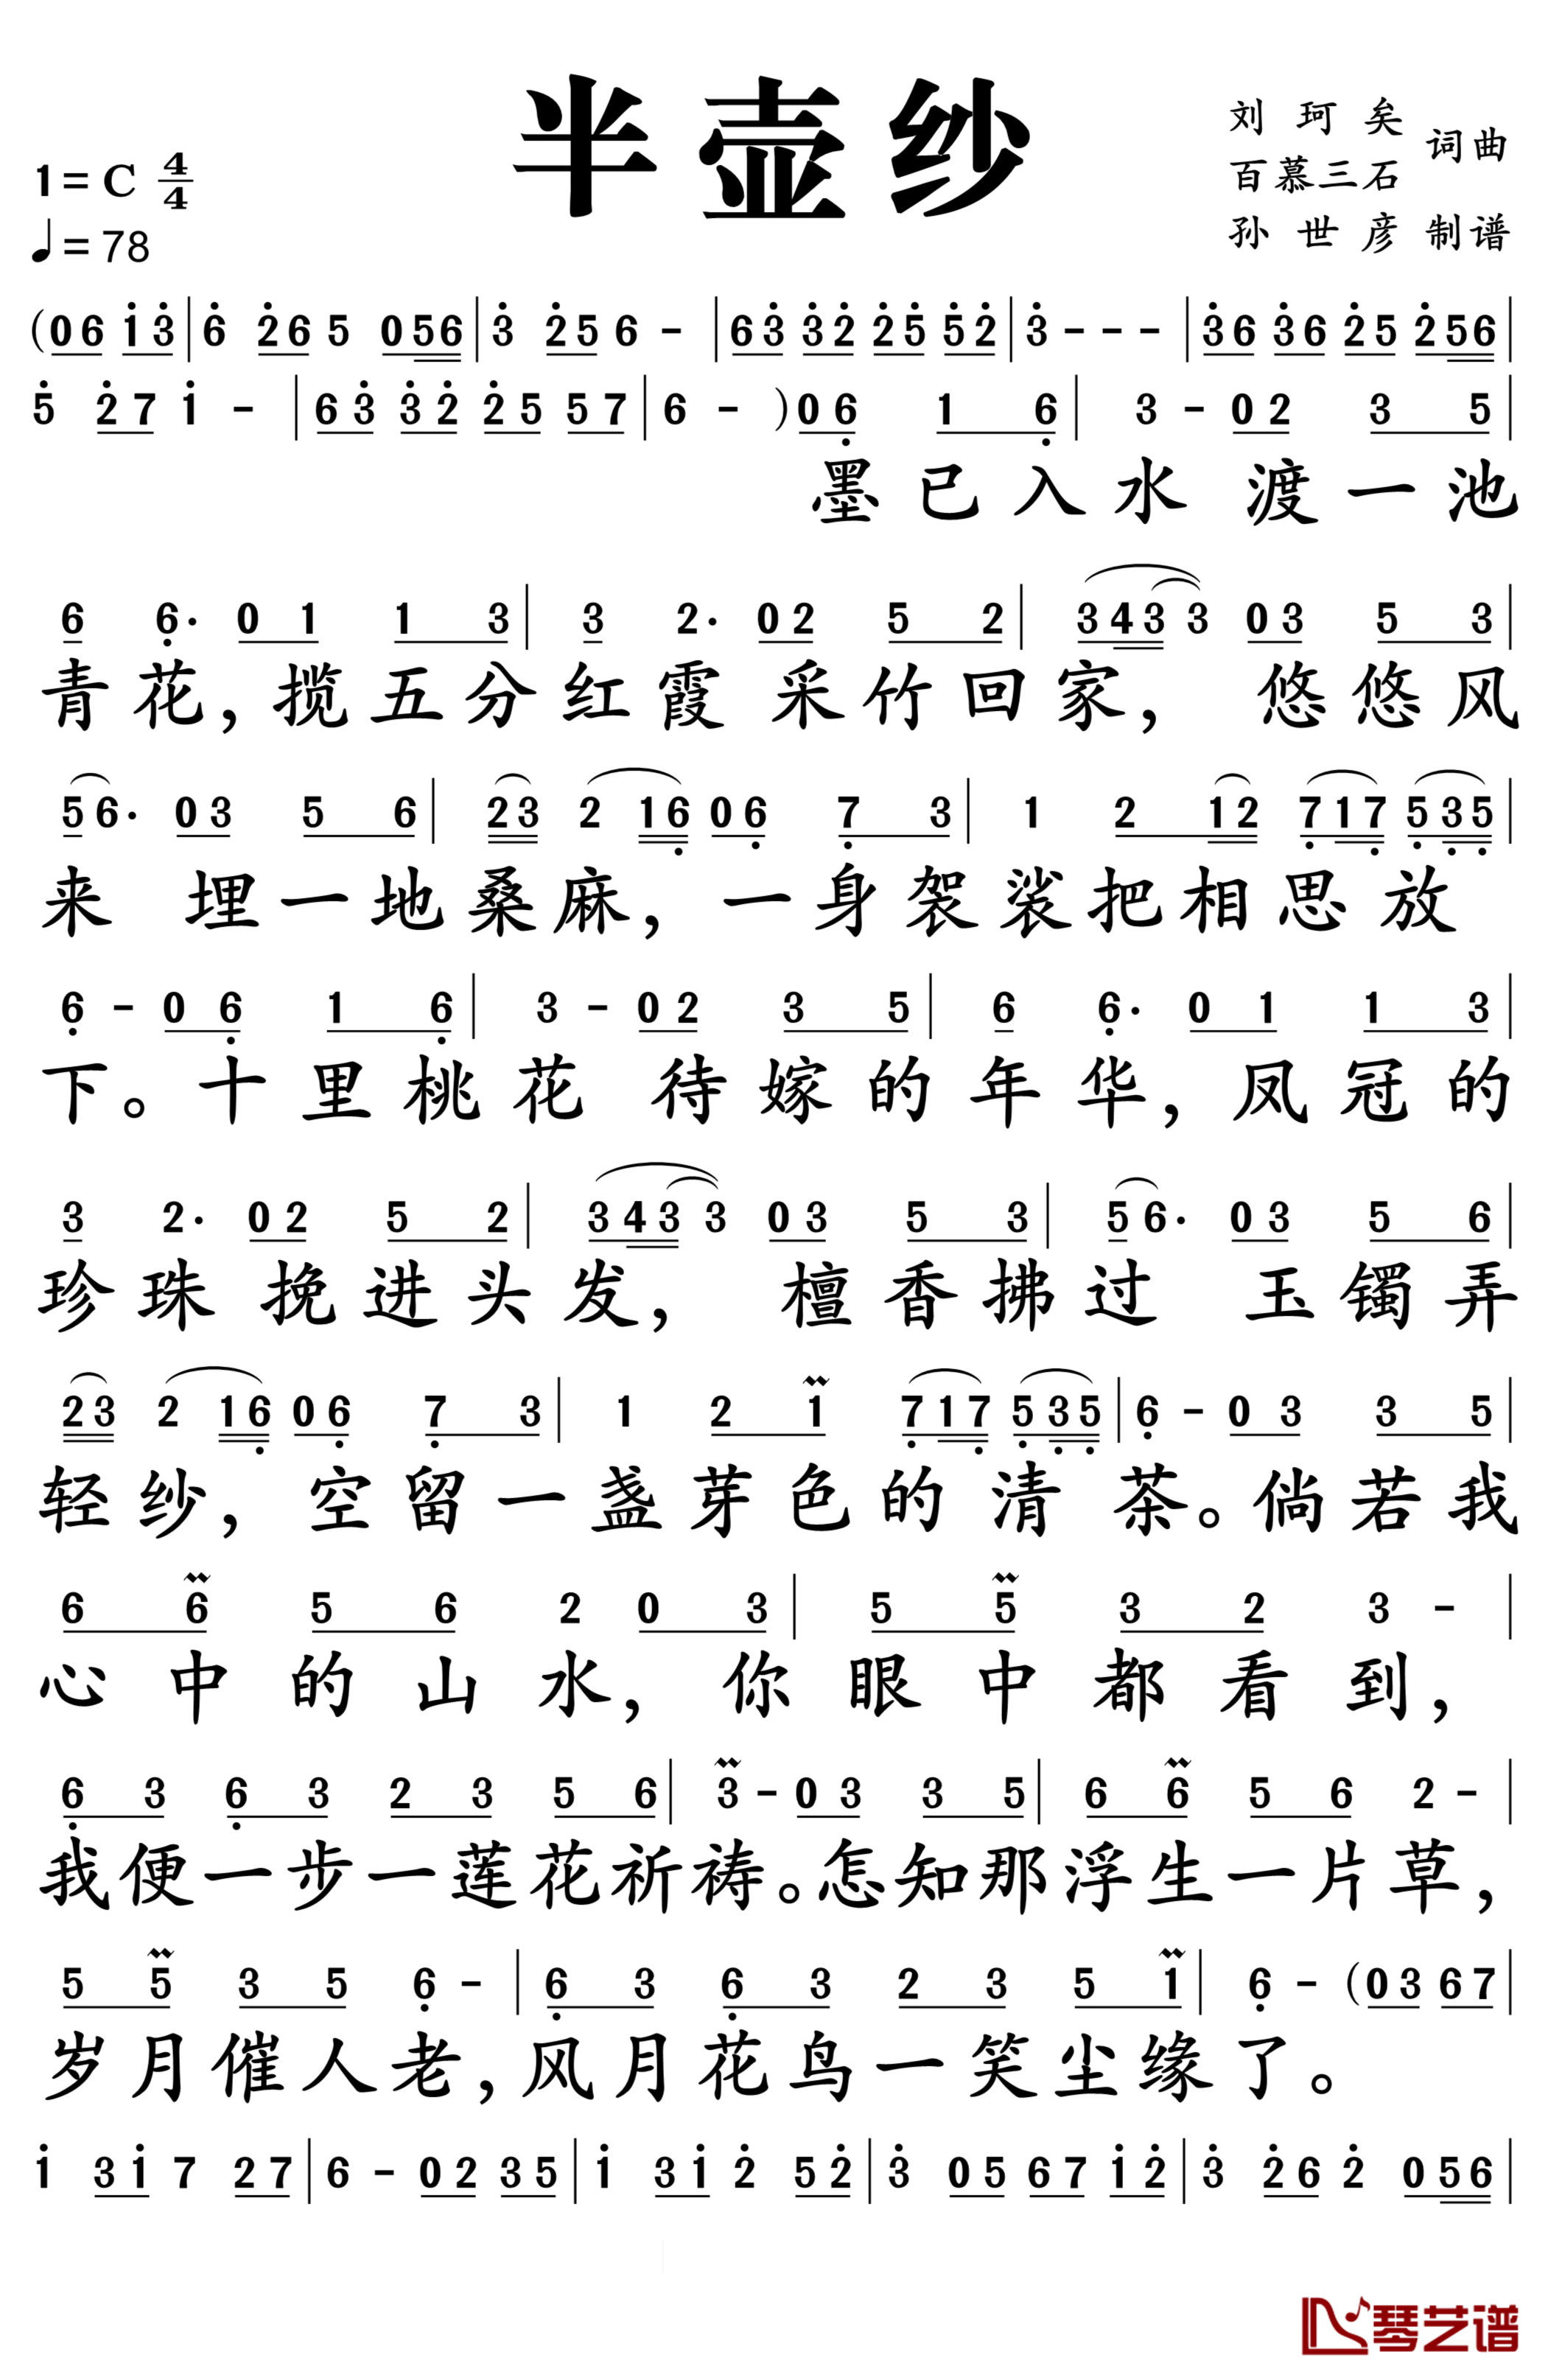 半壶纱
1=C 4/4
♩=78
刘珂矣 词曲
百慕三石
孙世彦 制谱
(06 1̇3̇|6̇ 2̇6 5 056|3̇ 2̇5 6 -|63̇ 3̇2̇ 2̇5̇ 5̇2̇|3̇ - - -|3̇6 3̇6 2̇5 2̇56|
5̇ 2̇7 1̇ -|63̇ 3̇2̇ 2̇5 57|6 - )06̣ 1 6̣|3 - 02 3 5|
墨已入水 渡一池
6 6̣. 01 1 3|3 2. 02 5 2|3433 03 5 3|
青花,揽五分红霞 采竹回家, 悠悠风
56. 03 5 6|23 2 16̣ 06̣ 7̣ 3|1 2 12 7̣17̣ 5̣3̣5̣|
来 埋一地桑麻,一身袈裟把相思放
6̣ - 06̣ 1 6̣|3 - 02 3 5|6 6̣. 01 1 3|
下。十里桃花 待嫁的年华,凤冠的
3 2. 02 5 2|3433 03 5 3|56. 03 5 6|
珍珠 挽进头发, 檀香拂过 玉镯弄
23 2 16̣ 06̣ 7̣ 3|1 2 1 7̣17̣ 5̣3̣5̣|6̣ - 03 3 5|
轻纱,空留一盏芽色的清茶。倘若我
6 6 5 6 2 0 3|5 5 3 2 3 -|
心中的山水,你眼中都看到,
6̣ 3 6̣ 3 2 3 5 6|3 - 03 3 5|6 6 5 6 2 -|
我便一步一莲花祈祷。怎知那浮生一片草,
5 5 3 5 6̣ -|6̣ 3 6̣ 3 2 3 5 1|6̣ - (03 67|
岁月催人老,风月花鸟一笑尘缘了。
1̇ 31̇ 7 27|6 - 02 35|1̇ 31̇ 2̇ 52̇|3̇ 05 67 1̇2̇|3̇ 2̇6 2̇ 056|
琴艺谱